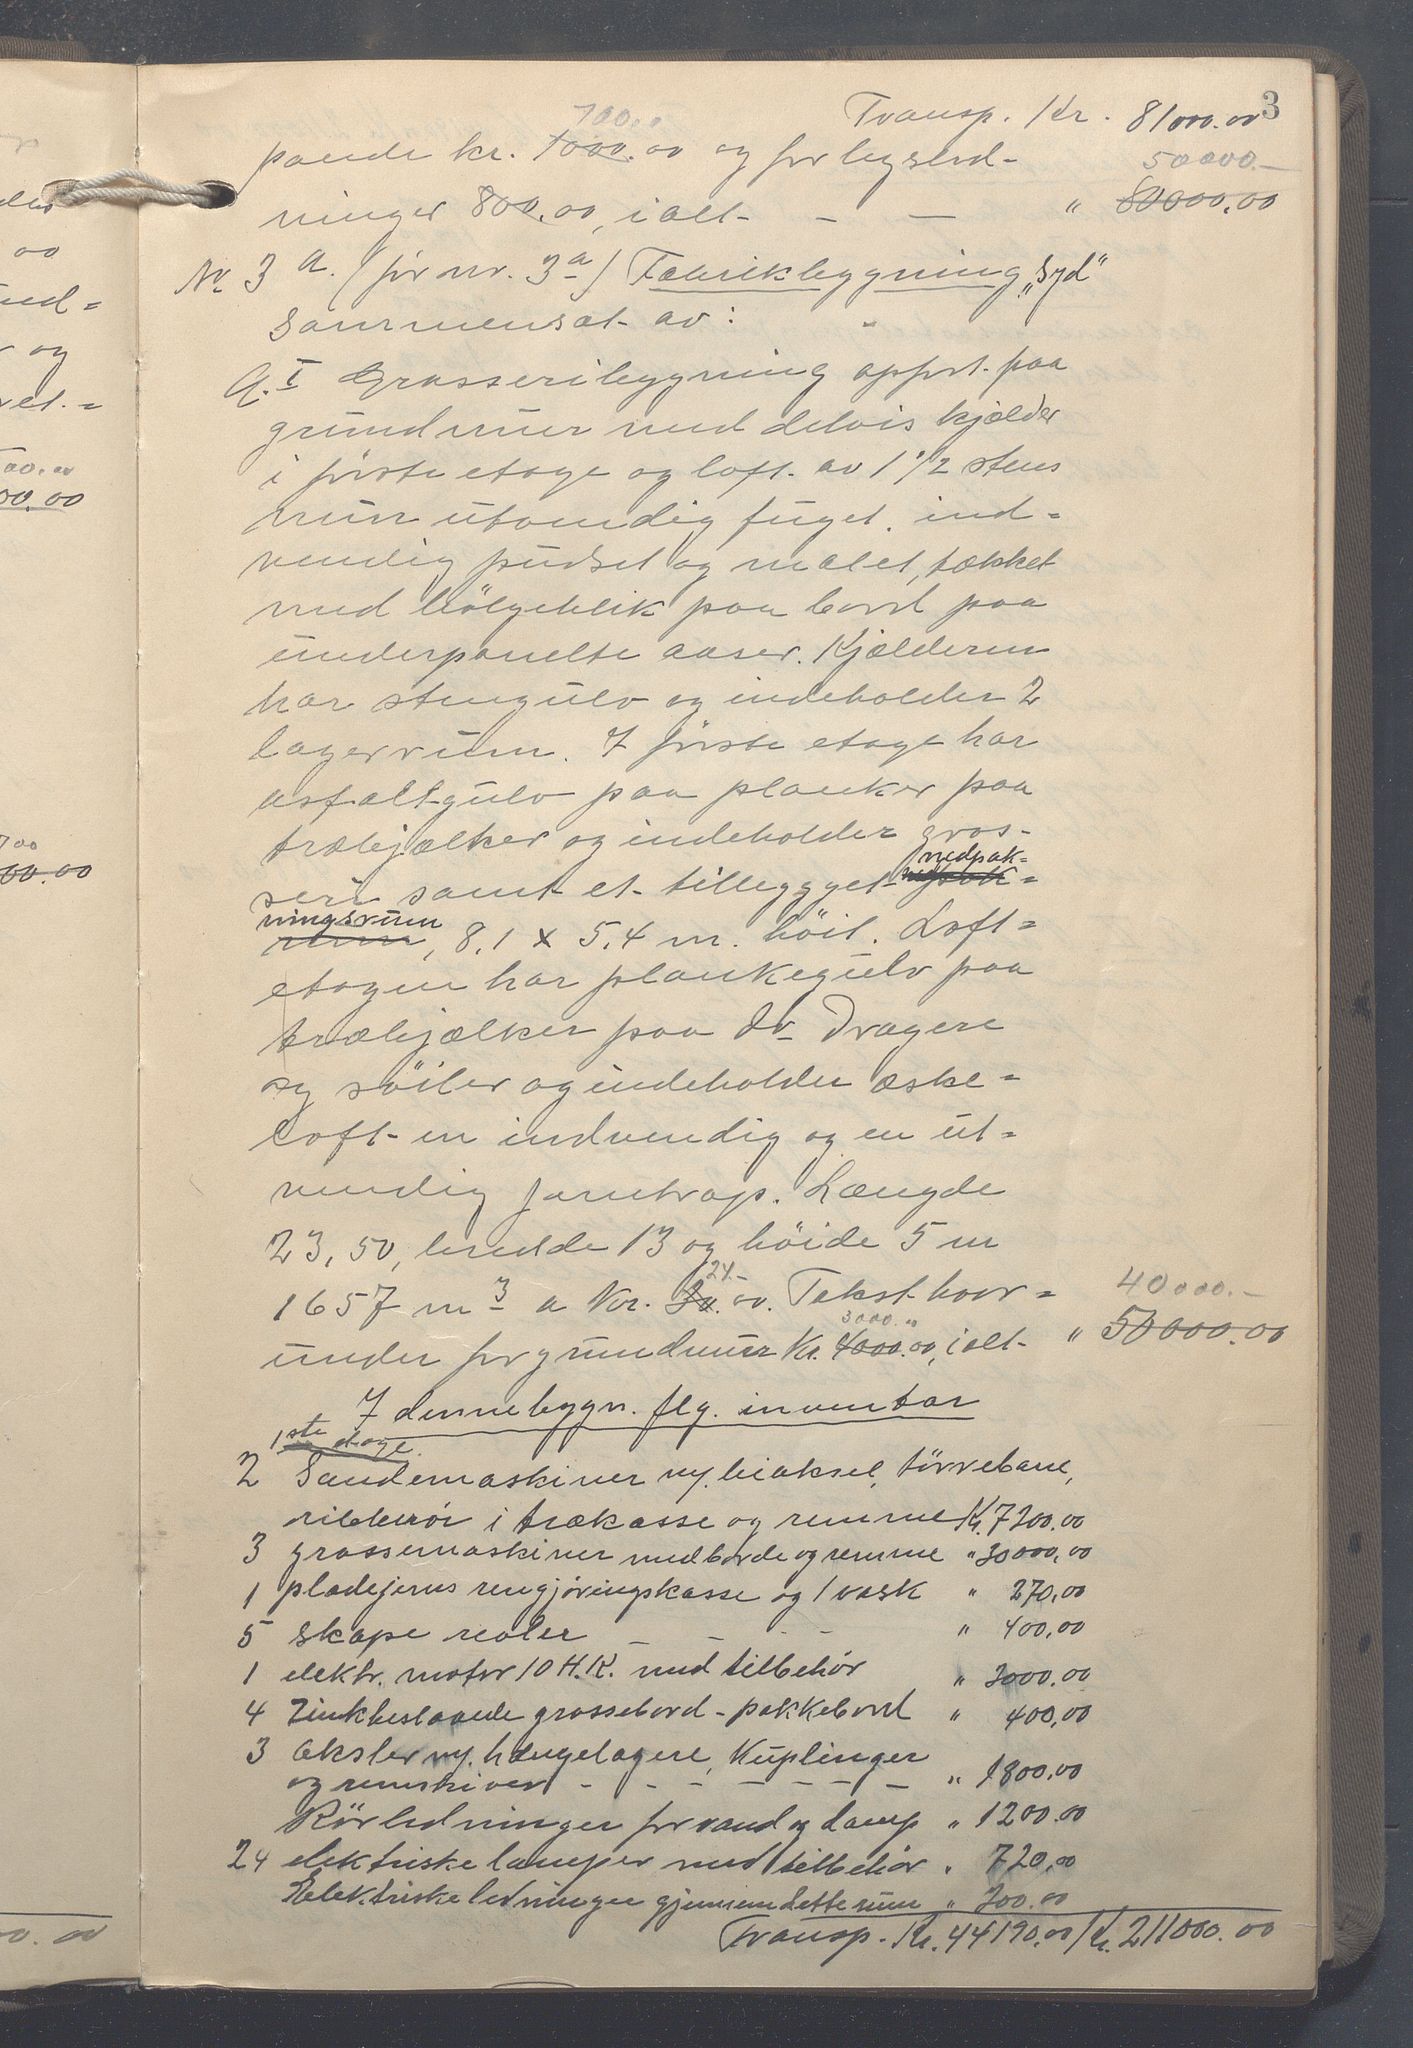 3
Transp. Kr. 81000.00
700.00
pande kr. 1000.00 og for lysled-
50000.-
ninger 800.00, ialt - - - " 80000.00
No 3 a. (før nr. 3a) Fabrikbygning „Syd"
Sammensat av:
A. I Grasseribygning opført paa
grundmur med delvis kjælder
i første etage og loft av 1 1/2 stens
mur utvendig fuget, ind=
vendig pudset og malet, tækket
med bölgeblik paa bord paa
underpanelte aaser. Kjælderen
har stengulv og indeholder 2
lagerrum. I første etage har
asfaltgulv paa planker paa
træbjælker og indeholder gras-
seri samt et tilbygget nedpak-
ningsrum, 8,1 x 5,4 m. höit. Loft=
etagen har plankegulv paa
træbjælker paa do- dragere
og söiler og indeholder æske=
loft - en indvendig og en ut=
vendig jerntrap. Længde
23,50, bredde 13 og höide 5 m
24.-
1657 m3 a Kr. 30.00. Takst herr=
40000.-
3000.00
under for grundmur Kr. 4000.00, ialt- " 50000.00
I denne bygn. flg. inventar
1ste etage.
2 Sandemaskiner m/. biaksel, törrebane,
ribberör i trækasse og remme Kr. 7200.00
3 grassemaskiner med borde og remme " 30000,00
1 pladejerns rengjöringskasse og 1 vask " 270,00
5 skape reoler - - - - " 400,00
1 elektr. motor 10 H.K. med tilbehör " 2000.00
4 Zinkbeslaaede grassebord - pakkebord " 400,00
3 Aksler m/. hængelagere, Kuplinger
og remskiver - - - - - - " 1800,00
Rörledninger for vand og damp " 1200.00
24 elektriske lamper med tilbehör " 720,00
Elektriske ledninger gjennem dette rum " 200.00
Transp. Kr. 44190.00 / Kr. 211000.00